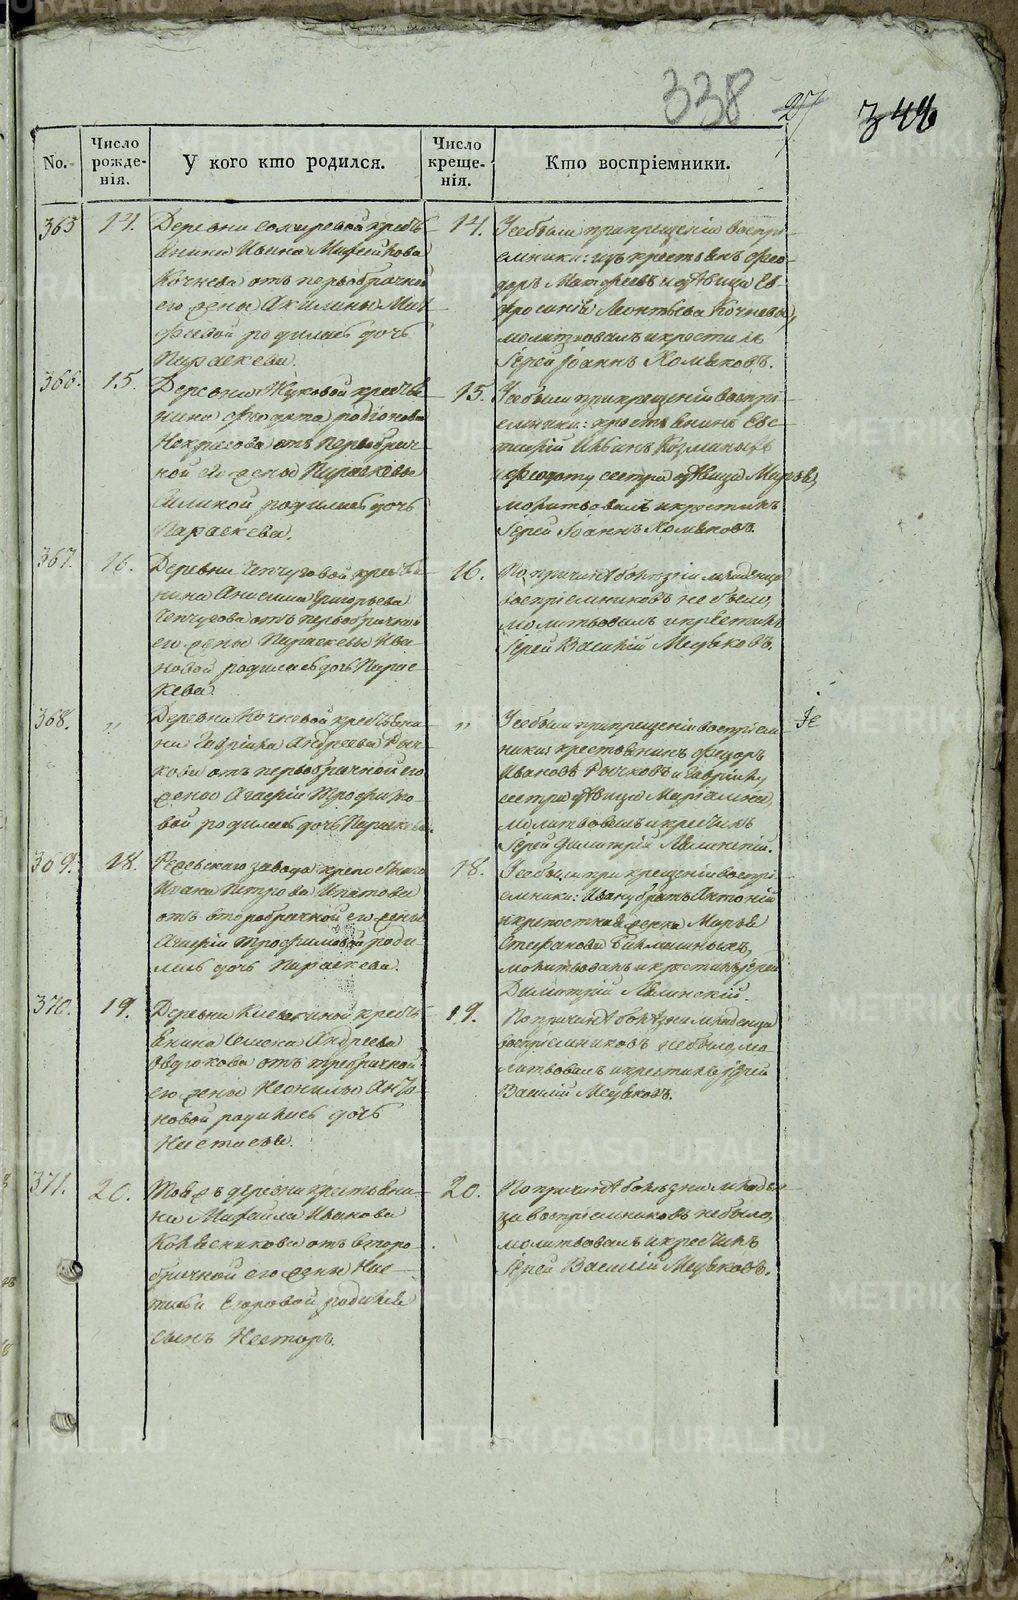 338
27
344
No.
Число рожде-нія.
У кого кто родился.
Число креще-нія.
Кто воспріемники.
365
14.
Деревни
крестъ
янина Ивана
Кочнева отъ первобрачной
его жены Акилины Мат
фѣевой родилась дочь
Параскева.
14.
У сей были при крещеніи воспрі-
емники: изъ крестьянъ Фео-
доръ Матфеевъ и дѣвица Ев-
фросинія Леонтьева Кочневы,
молитвовалъ и крестилъ
Іерей Іоаннъ Комяковъ.
366.
15.
Деревни Жуковой крестья
нина Федота Родіонова
Некрасова отъ первобрач-
ной его жены Параскевы
родилась дочь
Параскева.
15.
У сей были при крещеніи воспрі-
емники: крестьянинъ Евс-
тафій
и Федоту сестра дѣвица
молитвовалъ и крестилъ
Іерей Іоаннъ Комяковъ.
367.
16.
Деревни Чепчуговой крестья
нина Анисима Григорьева
Чепчугова отъ первобрачной
его жены Параскевы Ива
новой родилась дочь Парас
кева.
16.
По причинѣ болѣзни младенца
воспріемниковъ не было,
молитвовалъ и крестилъ
Іерей Василій
368.
"
Деревни Кочневой крестьяни-
на Гавріила Андреева Рыч
кова отъ первобрачной его
жены Агафіи Трофимо-
вой родилась дочь Параскева.
"
У сей были при крещеніи воспріем
ники: крестьянинъ Федоръ
Ивановъ Рычковъ и Гавріилу
сестра дѣвица Маріамна,
молитвовалъ и крестилъ
Іерей Димитрій Лялинскій.
369.
18.
Режевскаго завода крепостнаго
Ивана Петрова Ипатова
отъ второбрачной его жены
Агафіи Трофимовой роди-
лась дочь Параскева.
18.
У сей были при крещеніи воспрі
емники: Ивану братъ Антоній
и крепостная женка Марья
Стефанова
молитвовалъ и крестилъ Іерей
Димитрій Лялинскій.
370.
19.
Деревни
крестъ
янина Симона Андреева
отъ
его жены Неонилы Анто
новой родилась дочь
Настасья.
19.
По причинѣ болѣзни младенца
воспріемниковъ не было, мо-
литвовалъ и крестилъ Іерей
Василій
371.
20.
Той же деревни крестьяни-
на Михайла Иванова
Колясникова отъ второ-
брачной его жены Нас-
тасьи Егоровой родился
сынъ Несторъ.
20.
По причинѣ болѣзни младен
ца воспріемниковъ не было,
молитвовалъ и крестилъ
Іерей Василій
METRIKI.GASO-URAL.RU